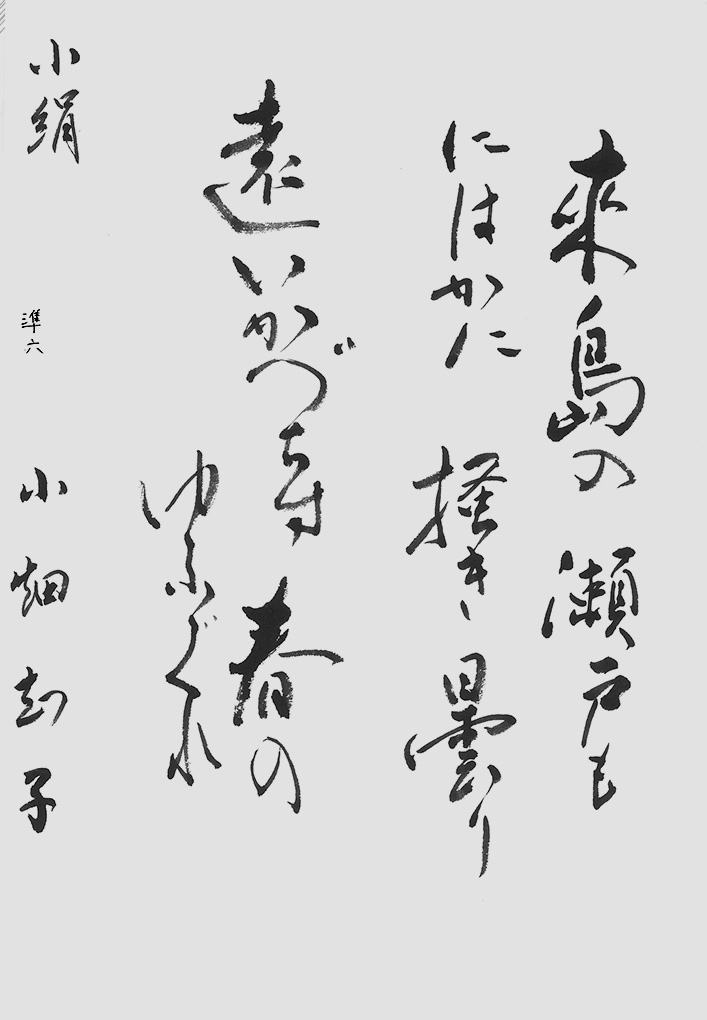 来島の 瀬戸も
にはかに 掻き曇り
遠いかづちす 春の
ゆふぐれ
小絹 準六 小畑 子